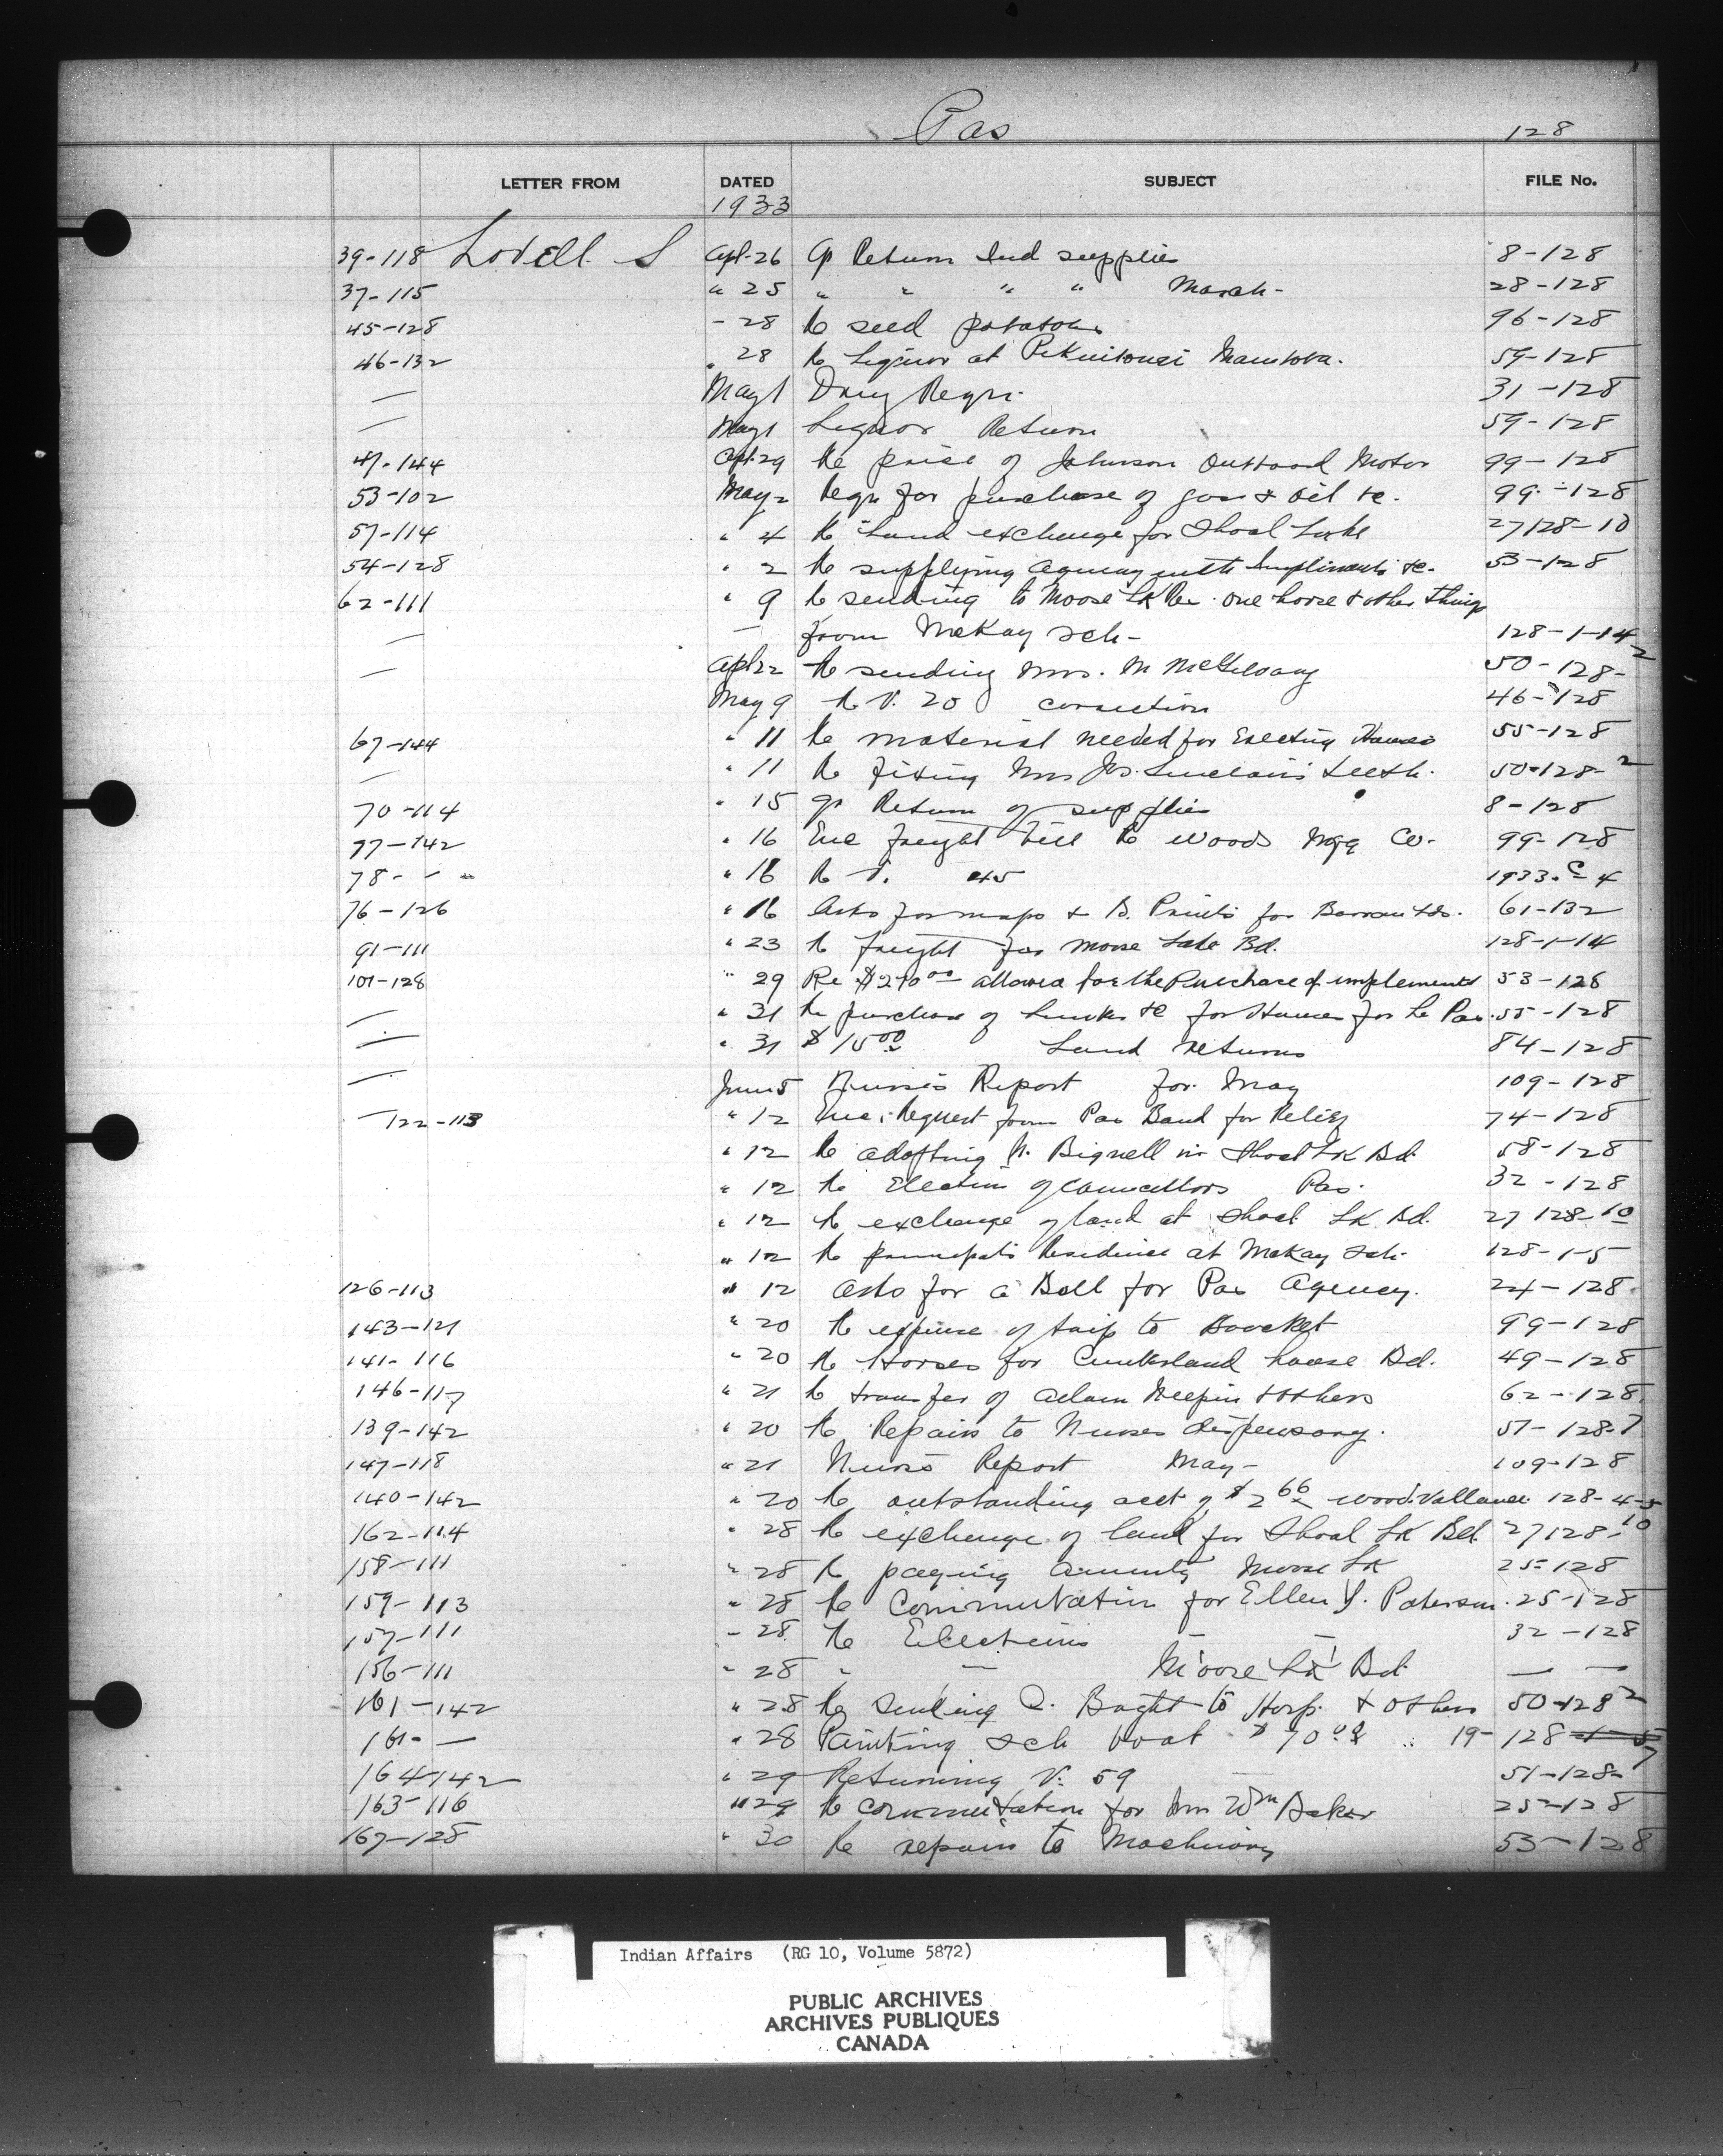 Pas 128
LETTER FROM DATED SUBJECT FILE No.
1933
39-118 Lovell S Apl-26 Return Ind supplies 8-128
37-115 " 25 " " " " March- 28-128
45-128 - 28 Re seed potatoes 96-128
46-132 " 28 Re Liquor at Manitoba. 59-128
— May 1 Drug Reqn. 31-128
— May 1 Liquor Return 59-128
47-144 Apl-29 Re price of Johnson Outboard Motor 99-128
53-102 May 2 Reqn for purchase of gas & oil &c. 99-128
57-114 " 4 Re Land exchange for Shoal Lake 27128-10
54-128 " 2 Re supplying Agency with Impliments &c. 53-128
62-111 " 9 Re sending to Moose Lk Re one horse & other things
— — from McKay sch- 128-1-14
— Apl 22 Re sending Mrs. M 50-128-2
May 9 Re V. 20 correction 46-128
67-144 " 11 Re material needed for Erecting Houses 55-128
— " 11 Re fixing Mrs Jos. Sinclair's teeth. 50-128-2
70-114 " 15 Return of supplies 8-128
77-142 " 16 Enc freight bill Re Woods Mfg Co. 99-128
78- - " " 16 Re V. 45 1933-C-4
76-126 " 16 Asks for maps & B. Prints for 61-132
91-111 " 23 Re freight for Moose Lake Bd. 128-1-14
107-128 " 29 Re $270 00 allowed for the Purchase of implements 53-128
— " 31 Re purchase of &c for Houses for Le Pas 55-128
— " 31 $15 00 Land returns 84-128
— June 5 Nurse's Report for May 109-128
— 122-113 " 12 Enc. Request from Pas Band for Relief 74-128
" 12 Re adopting Bignell in Shoal Lk Bd. 58-128
" 12 Re Election of Councellors Pas. 32-128
" 12 Re exchange of land at Shoal Lk Bd. 27 128-10
" 12 Re principal's Residence at McKay Sch. 128-1-5
126-113 " 12 Asks for a Bell for Pas Agency. 24-128
143-121 " 20 Re expense of trip to 99-128
141-116 " 20 Re Horses for Cumberland house Bd. 49-128
146-117 " 21 Re transfer of Adam & others 62-128
139-142 " 20 Re Repairs to Nurses dispensary. 51-128-7
147-118 " 21 Nurse's Report May- 109-128
140-142 " 20 Re outstanding acct of $2 66 Wood Vallance 128-4-5
162-114 " 28 Re exchange of land for Shoal Lk Bd 27128-10
158-111 " 28 Re paying Annuity Moose Lk 25-128
159-113 " 28 Re Commutation for Ellen Y. Paterson. 25-128
157-111 - 28 Re Elections — — 32-128
156-111 " 28 " — Moose Lk Bd — —
161-142 " 28 Re Sending to Hosp. & others 50-128-2
161- — " 28 Painting sch boat $70 00 19-128
164-142 " 29 Returning V. 59 — 51-128-7
163-116 " 29 Re commutation for Mrs Wm Baker 25-128
167-128 " 30 Re repairs to Machinery 53-128
Indian Affairs (RG 10, Volume 5872)
PUBLIC ARCHIVES
ARCHIVES PUBLIQUES
CANADA